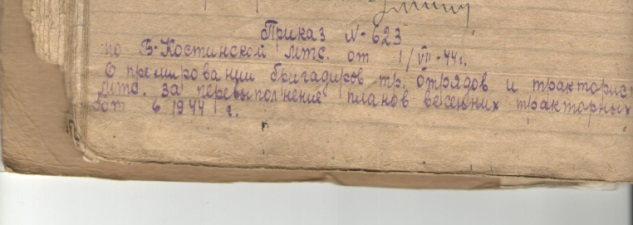 Приказ № 623
по Б-Костинской мтс. от 1/VII-44г.
О премировании бригадиров тр. отрядов и тракторис
мтс. за перевыполнение планов весенних тракторных
работ в 1944 г.